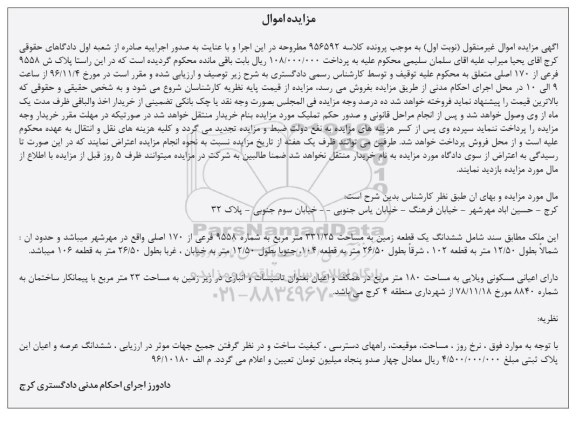 مزایده اموال
اگهی مزایده اموال غیرمنقول (نوبت اول) به موجب پرونده کلاسه ۹۵۶۵۹۲ مطروحه در این اجرا و با عنایت به صدور اجراییه صادره از شعبه اول دادگاهای حقوقی
کرج اقای یحیا میراب علیه اقای سلمان سلیمی محکوم علیه به پرداخت ۱۰۸/۰۰۰/۰۰۰ ریال بابت باقی مانده محکوم گردیده است که در این راستا پلاک ش ۹۵۵۸
فرعی از ۱۷۰ اصلی متعلق به محکوم علیه توقیف و توسط کارشناس رسمی دادگستری به شرح زیر توصیف و ارزیابی شده و مقرر است در مورخ ۹۶/۱۱/۴ از ساعت
۹ الی ۱۰ در محل اجرای احکام مدنی از طریق مزایده بفروش می رسد، مزایده از قیمت پایه نظریه کارشناسان شروع می شود و به شخص حقیقی و حقوقی که
بالاترین قیمت را پیشنهاد نماید فروخته خواهد شد ده درصد وجه مزایده فی المجلس بصورت وجه نقد یا چک بانکی تضمینی از خریدار اخذ والباقی ظرف مدت یک
ماه از وی وصول خواهد شد و پس از انجام مراحل قانونی و صدور حکم تملیک مورد مزایده بنام خریدار منتقل خواهد شد در صورتیکه در مهلت مقرر خریدار وجه
مزایده را پرداخت ننماید سپرده وی پس از کسر هزینه های مزایده به نفع دولت ضبط و مزایده تجدید می گردد و کلیه هزینه های نقل و انتقال به عهده محکوم
علیه است و از محل فروش پرداخت خواهد شد. طرفین می توانند ظرف یک هفته از تاریخ مزایده نسبت به نحوه انجام مزایده اعتراض نمایند که در این صورت تا
رسیدگی به اعتراض از سوی دادگاه مورد مزایده به نام خریدار منتقل نخواهد شد ضمنا طالبین به شرکت در مزایده میتوانند ظرف ۵ روز قبل از مزایده با اطلاع از
مال مورد مزایده بازدید نمایند.
مال مورد مزایده و بهای ان طبق نظر کارشناس بدین شرح است:
کرج - حسین اباد مهرشهر - خیابان فرهنگ - خیابان یاس جنوبی - - خیابان سوم جنوبی - پلاک ۳۲
این ملک مطابق سند شامل ششدانگ یک قطعه زمین به مساحت ۳۳۱/۲۵ متر مربع به شماره ۹۵۵۸ فرعی از ۱۷۰ اصلی واقع در مهرشهر میباشد و حدود ان :
شمالاً بطول ۱۲/۵۰ متر به قطعه ۱۰۲ ، شرقاً بطول ۲۶/۵۰ متر به قطعه ۱۰۴، جنوبا بطول ۱۲/۵۰ متر به خیابان ، غربا بطول ۲۶/۵۰ متر به قطعه ۱۰۶ میباشد.
دارای اعیانی مسکونی ویلایی به مساحت ۱۸۰ متر مربع در همکف و اعیان بعنوان تاسیسات و انباری در زیر زمین به مساحت ۲۳ متر مربع با پیمانکار ساختمان به
شماره ۸۸۴۰ مورخ ۷۸/۱۱/۱۸ از شهرداری منطقه ۴ کرج می باشد.
نظریه:
با توجه به موارد فوق ، نرخ روز ، مساحت، موقیعت، راههای دسترسی ، کیفیت ساخت و در نظر گرفتن جمیع جهات موثر در ارزیابی ، ششدانگ عرصه و اعیان این
پلاک ثبتی مبلغ ۴/۵۰۰/۰۰۰/۰۰۰ ریال معادل چهار صدو پنجاه میلیون تومان تعیین و اعلام می گردد. م الف ۹۶/۱۰۱۸۰
دادورز اجرای احکام مدنی دادگستری کرج
ParsNamadData
۰۲۱-۸۸۳۴۹۶۷۰-۵